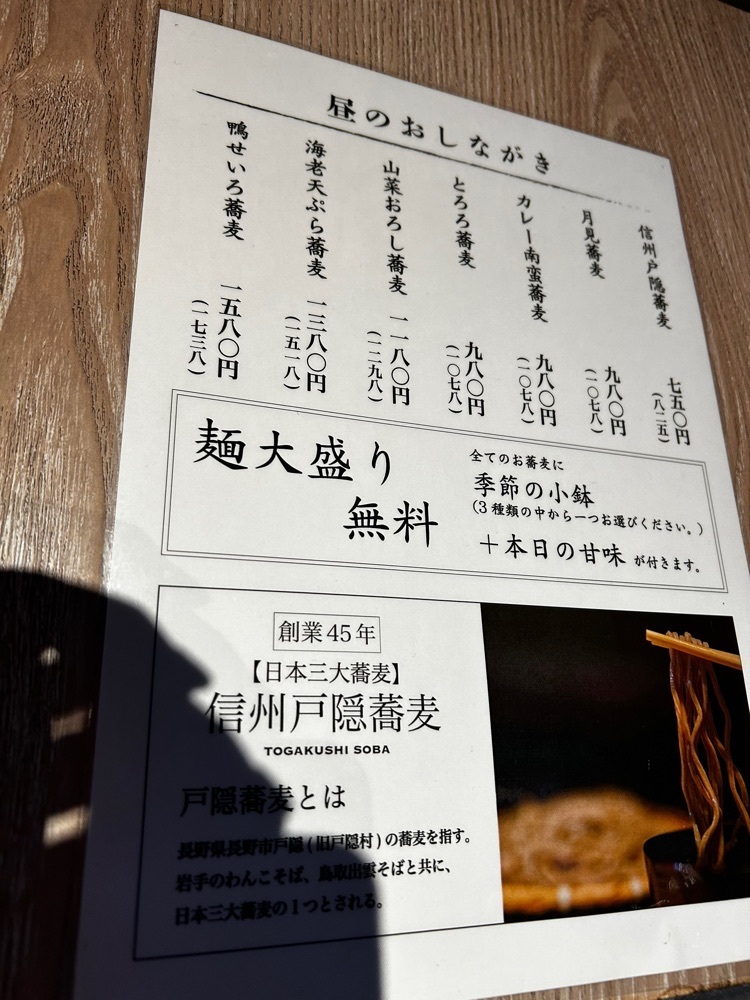 昼のおしながき
信州戸隠蕎麦 七五〇円
(八二五)
月見蕎麦 九八〇円
(一〇七八)
カレー南蛮蕎麦 九八〇円
(一〇七八)
とろろ蕎麦 九八〇円
(一〇七八)
山菜おろし蕎麦 一一八〇円
(一二九八)
海老天ぷら蕎麦 一三八〇円
(一五一八)
鴨せいろ蕎麦 一五八〇円
(一七三八)
麺大盛り
無料
全てのお蕎麦に
季節の小鉢
(3種類の中から一つお選びください。)
+本日の甘味 が付きます。
創業45年
【日本三大蕎麦】
信州戸隠蕎麦
TOGAKUSHI SOBA
戸隠蕎麦とは
長野県長野市戸隠(旧戸隠村)の蕎麦を指す。
岩手のわんこそば、鳥取出雲そばと共に、
日本三大蕎麦の1つとされる。